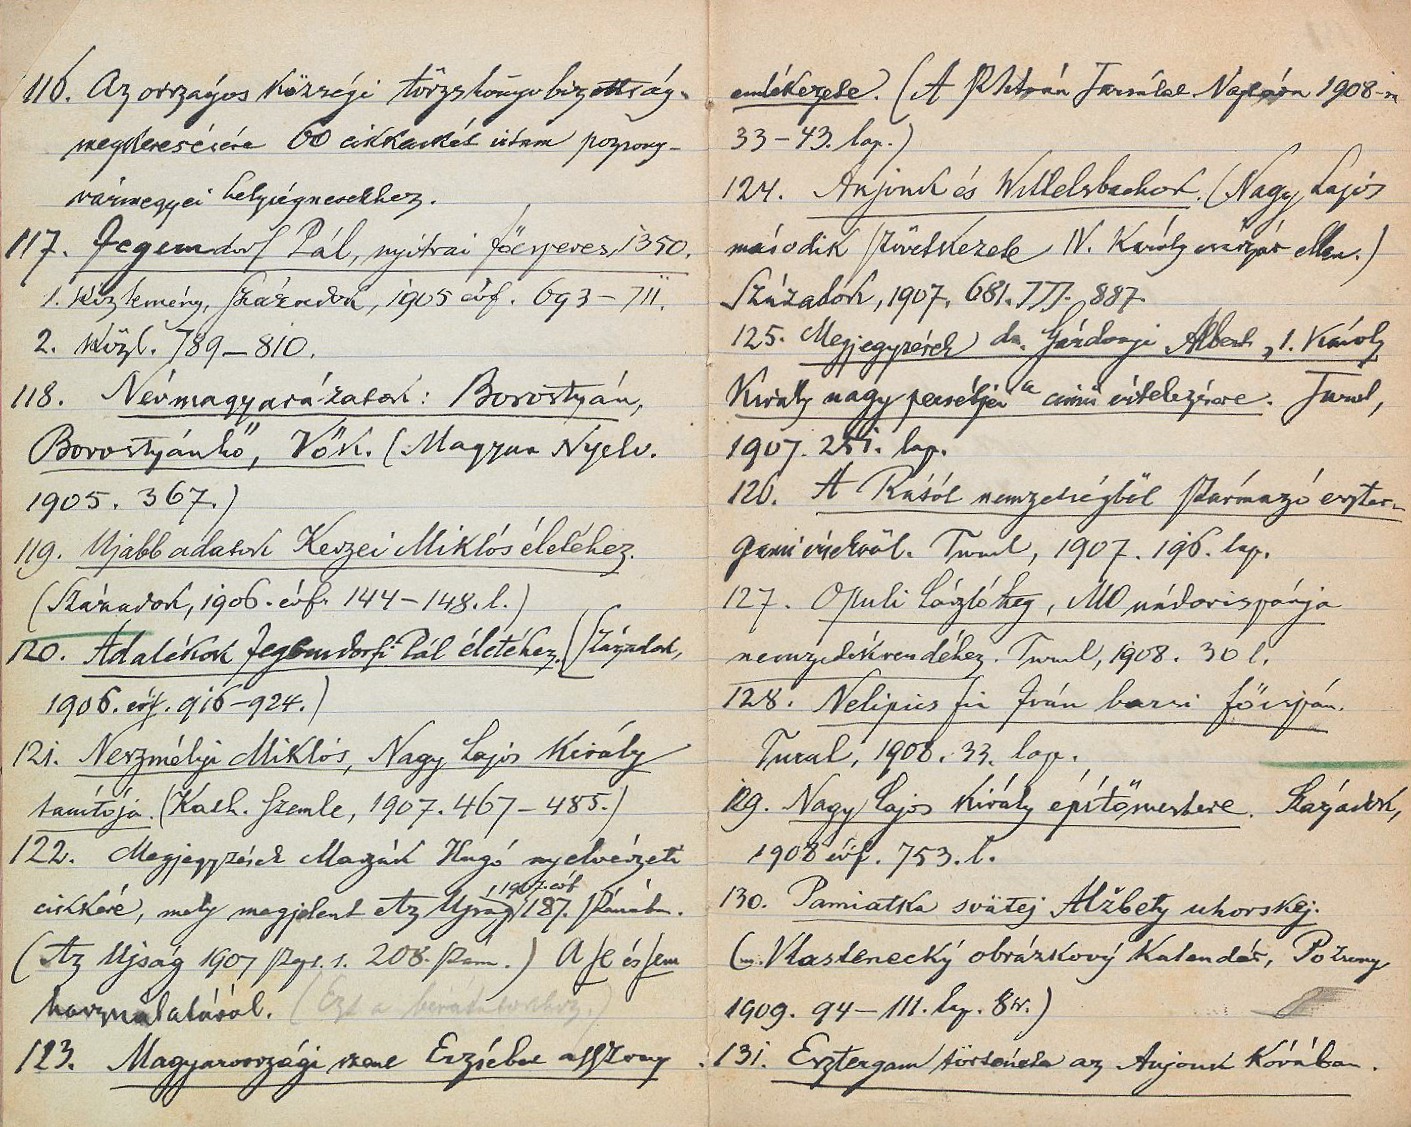 116. Az országos községi törzskönyvbizottság
megkeresésére 60 cikkecskét írtam pozsony-
vármegyei helységnevekhez.
117. Jegerndorf Pál, nyitrai főesperes, 1350.
1. közlemény, Századok, 1905 évf. 693–711.
2. közl. 789–810.
118. Névmagyarázatok: Borostyán,
Borostyánkő, Vők. (Magyar Nyelv.
1905. 367.)
119. Ujabb adatok Kerzei Miklós életéhez.
(Századok, 1906. évf. 144–148. l.)
120. Adalékok Jegerndorfi Pál életéhez. (Századok,
1906. évf. 916–924.)
121. Neszmélyi Miklós, Nagy Lajos király
tanítója. (Kath. Szemle, 1907. 467–485.)
122. Megjegyzések Mazák Hugó nyelvészeti
1907. évf
cikkére, mely megjelent Az Ujság 187. számában.
(Az Ujság 1907 208. szám.) A se és sem
használatáról. (Ezt a bírálatokhoz.)
123. Magyarországi szent Erzsébet asszony
emlékezete. (A Sz. István Társulat Naptára 1908-ra
33–43. lap.)
124. Anjouk és Wittelsbachok. (Nagy Lajos
második szövetkezete IV. Károly császár ellen.)
Századok, 1907, 681. 777. 887.
125. Megjegyzések dr. Gárdonyi Albert „I. Károly
király nagy pecsétjei“ című értekezésére. Turul,
1907. 251. lap.
126. A Rátót nemzetségből származó eszter-
gomi érsekről. Turul, 1907. 196. lap.
127. Opuli László hg, MO nádorispánja
nemzedékrendéhez. Turul, 1908. 30 l.
128. Nelipics fia Iván barsi főispán.
Turul, 1908. 33. lap.
129. Nagy Lajos király építőmestere. Századok,
1908 évf. 753. l.
130. Pamiatka svätej Alžbety uhorskej.
(Vlastenecký obrázkový Kalendár, Pozsony
1909. 94–111. lap. 8r.)
131. Esztergom története az Anjouk korában.